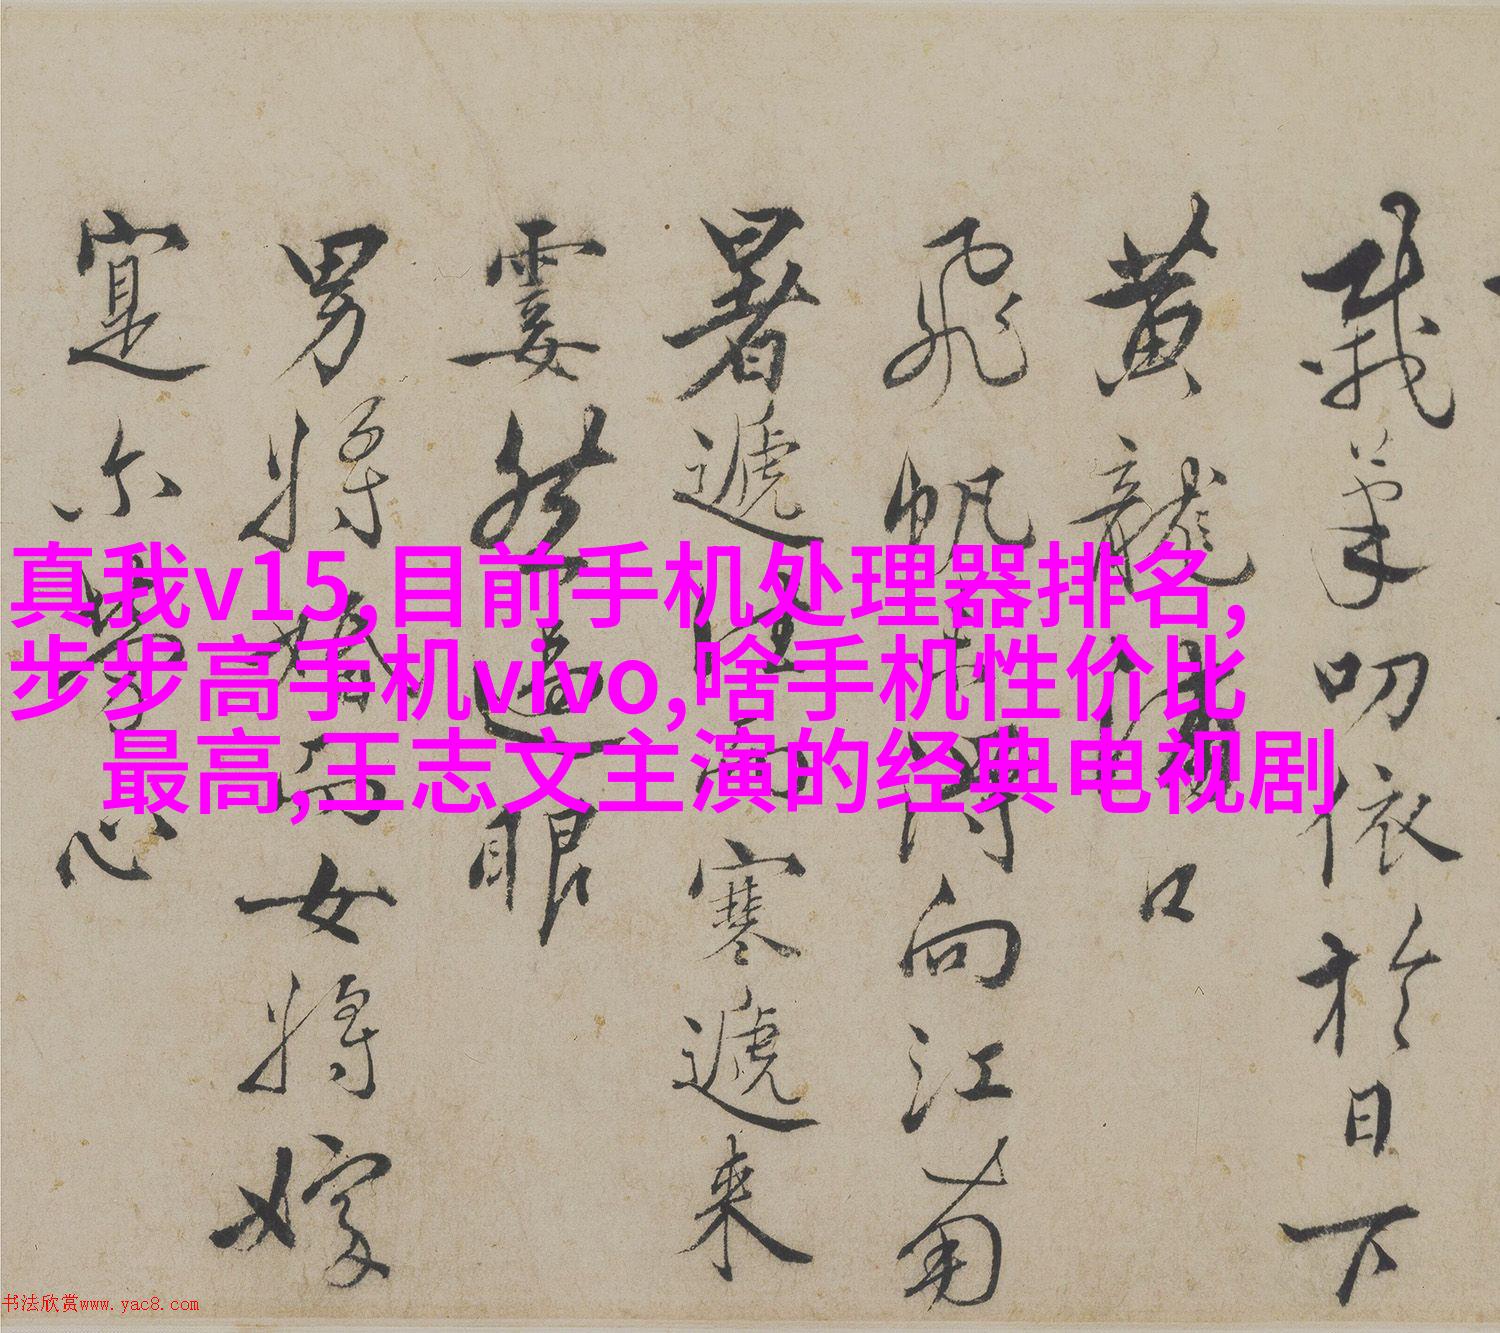 載筆叨依於日下
黃龍口
飛帆向江南
暑遞往而寒遞來
霎然過眼
男將婚而女將嫁
寔尔勞心
真我v15,目前手机处理器排名,
步步高手机vivo,啥手机性价比
最高,王志文主演的经典电视剧
书法欣赏www.yac8.com